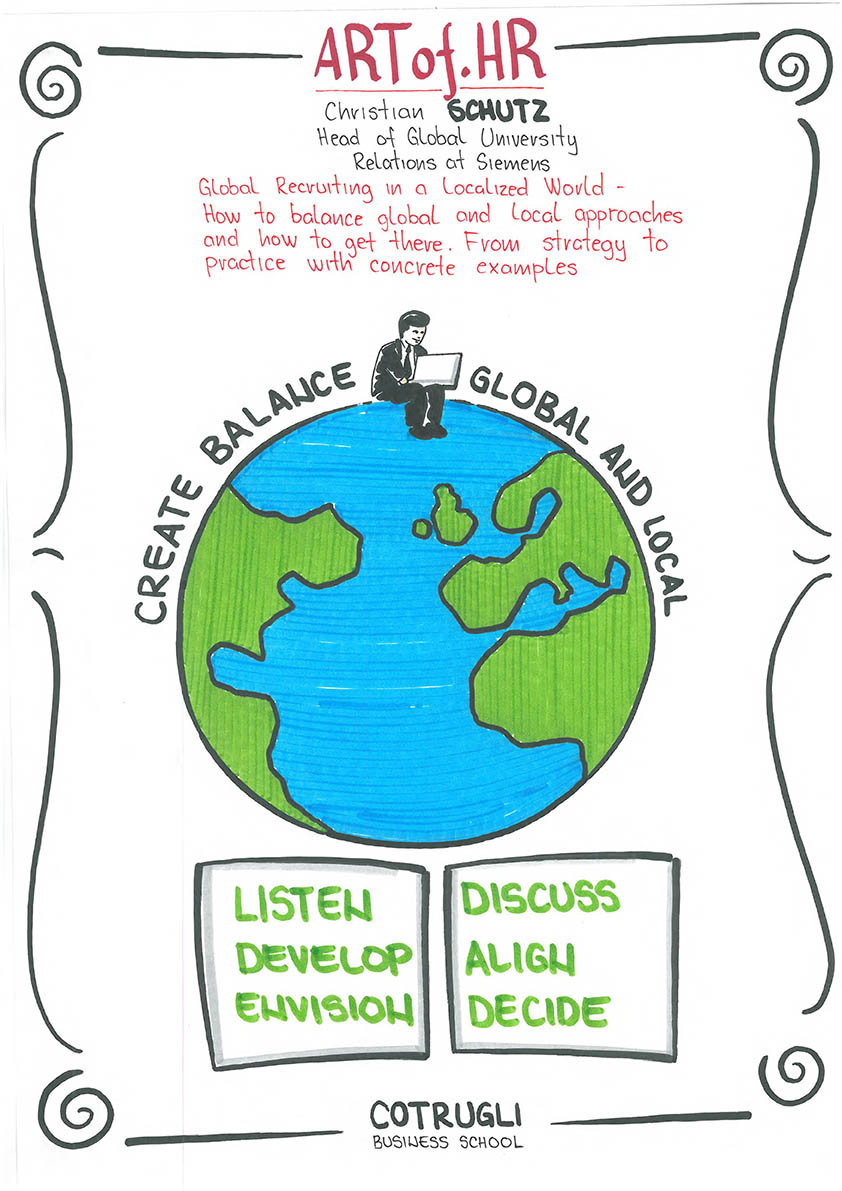 ART of. HR
Christian SCHUTZ
Head of Global University
Relations at Siemens
Global Recruiting in a Localized World -
How to balance global and local approaches
and how to get there. From strategy to
practice with concrete examples
CREATE BALANCE GLOBAL AND LOCAL
LISTEN
DEVELOP
ENVISION
DISCUSS
ALIGN
DECIDE
COTRUGLI
BUSINESS SCHOOL